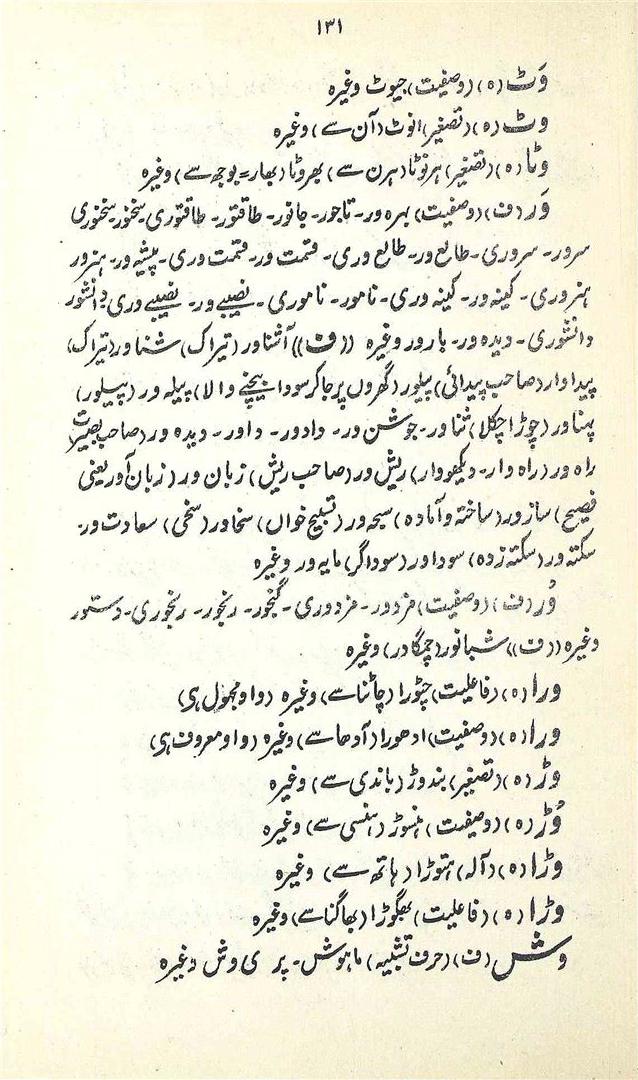 ۱۳۱
وَٹ (ہ) (وصفیت) جیوٹ وغیرہ
وٹ (ہ) (تصغیر) انوٹ (آن سے) وغیرہ
وٹا (ہ) (تصغیر) ہرنوٹا (ہرن سے) بھروٹا (بھار = بوجھ سے) وغیرہ
وَر (ف) (وصفیت) بہرہ ور۔ تاجور۔ جانور۔ طاقتور۔ طاقتوری۔ سخنور۔ سخنوری
سرور۔ سروری۔ طالع ور۔ طالع وری۔ قسمت ور۔ قسمت وری۔ پیشہ ور۔ ہنرور
ہنروری۔ کینہ ور۔ کینہ وری۔ نامور۔ ناموری۔ نصیبے ور۔ نصیبے وری۔ دانشور
دانشوری۔ دیدہ ور۔ بارور وغیرہ ((ف)) آشناور (تیراک) شناور (تیراک)
پیداوار (صاحب پیدائی) پیلور (گھروں پر جاکر سودا بیچنے والا) پیلہ ور (پیلور)
پہناور (چوڑا چکلا) ثناور۔ جوشن ور۔ دادور۔ داور۔ دیدہ ور (صاحب بصیرت)
راہ ور (راہ وار۔ دیکھو وار) ریش ور (صاحب ریش) زبان ور (زبان آور یعنی
فصیح) سازور (ساختہ و آمادہ) سبحہ ور (تسبیح خواں) سخاور (سخی) سعادت ور۔
سکتہ ور (سکتہ زدہ) سوداور (سوداگر) مایہ ور وغیرہ
وُر (ف) (وصفیت) مزدور۔ مزدوری۔ گنجور۔ رنجور۔ رنجوری۔ دستور
وغیرہ ((ف)) شبانور (چمگادر) وغیرہ
ورا (ہ) (فاعلیت) چٹورا (چاٹنا سے) وغیرہ (واو مجہول ہی)
ورا (ہ) (وصفیت) ادھورا (آدھا سے) وغیرہ (واو معروف ہی)
وڑ (ہ) (تصغیر) بندوڑ (باندی سے) وغیرہ
وُڑ (ہ) (وصفیت) ہنسوڑ (ہنسی سے) وغیرہ
وڑا (ہ) (آلہ) ہتوڑا (ہاتھ سے) وغیرہ
وڑا (ہ) (فاعلیت) بھگوڑا (بھاگنا سے) وغیرہ
وش (ف) (حرف تشبیہ) ماہوش۔ پری وش وغیرہ